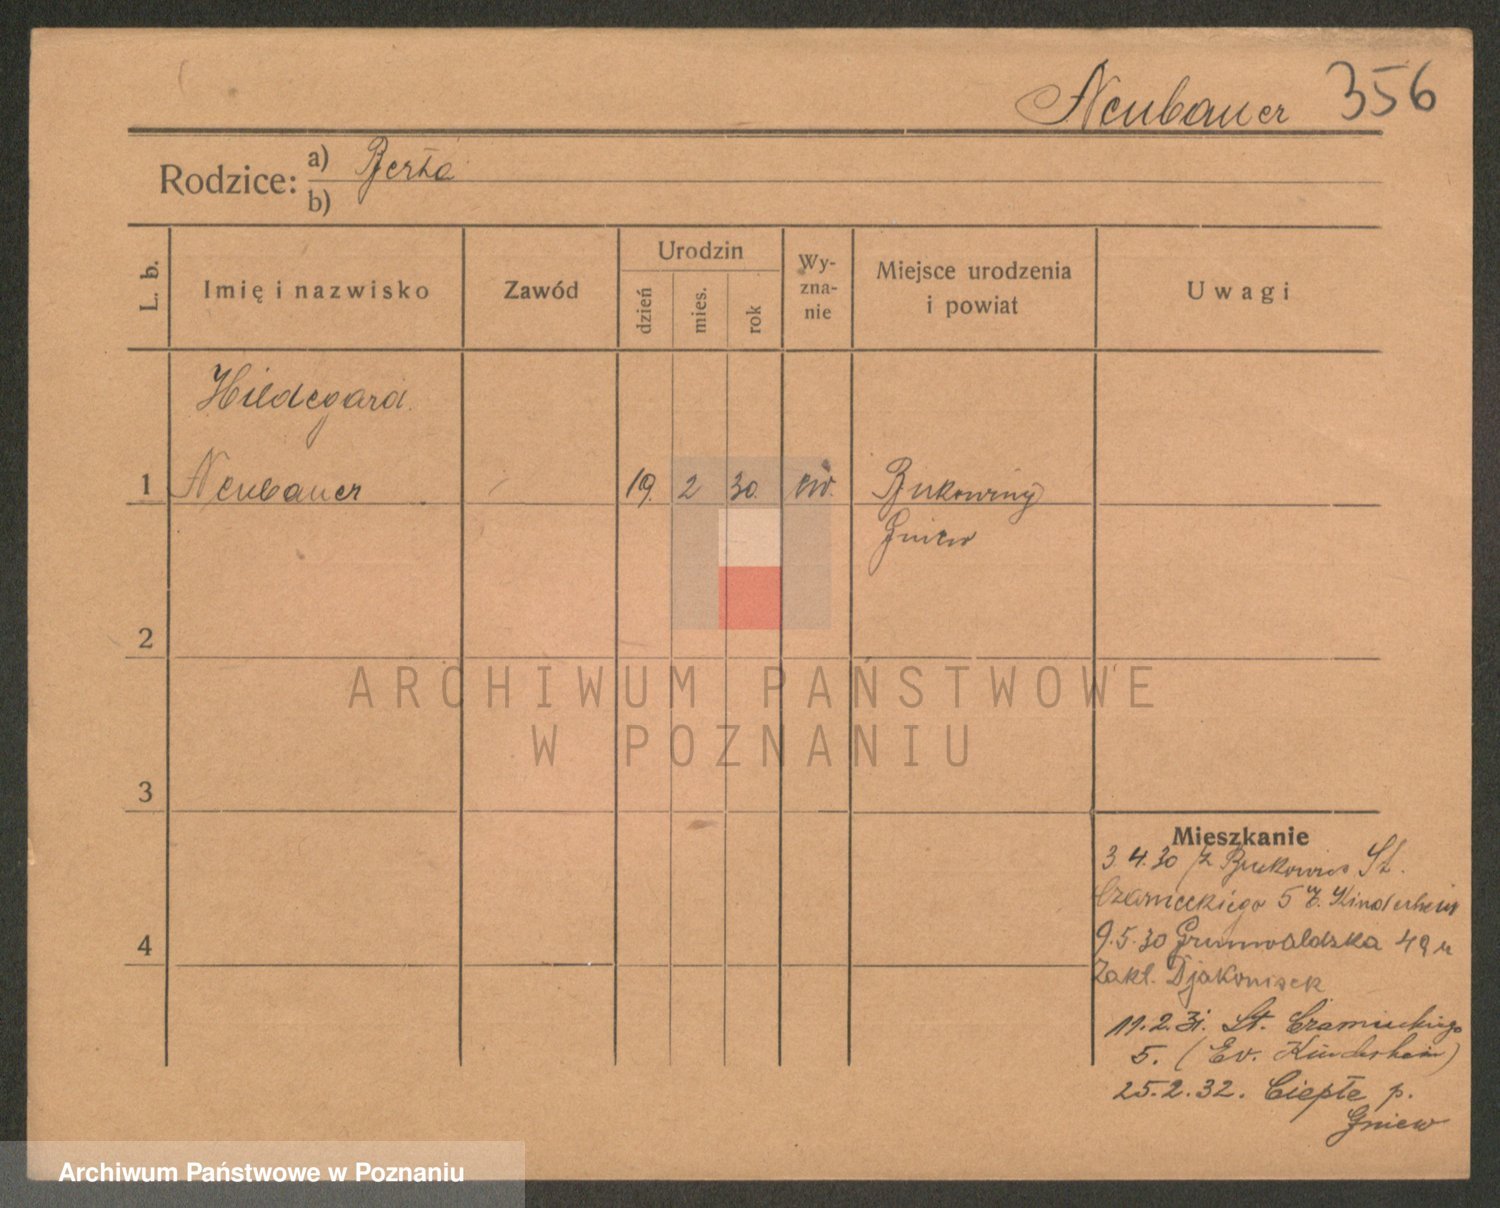 Neubauer 356
Rodzice: a) Berta
b)
L. b.
Imię i nazwisko
Zawód
Urodzin
dzień
mies.
rok
Wy-
zna-
nie
Miejsce urodzenia
i powiat
Uwagi
Hildegard
1 Neubauer 19. 2 30. ew. Bukowiny
Gniew
2
3
4
ARCHIWUM PAŃSTWOWE
W POZNANIU
Mieszkanie
3.4.30 z St.
Czarnieckiego 5 Kinderheim
9.5.30 Grunwaldzka 49
Zakł. Djakonisek
11.2.31. St. Czarnieckiego
5. (Ev. Kinderheim)
25.2.32. Ciepłe p.
Gniew
Archiwum Państwowe w Poznaniu